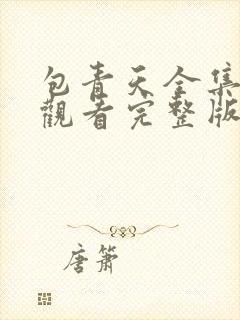 包青天全集
觀看完整版
唐箫